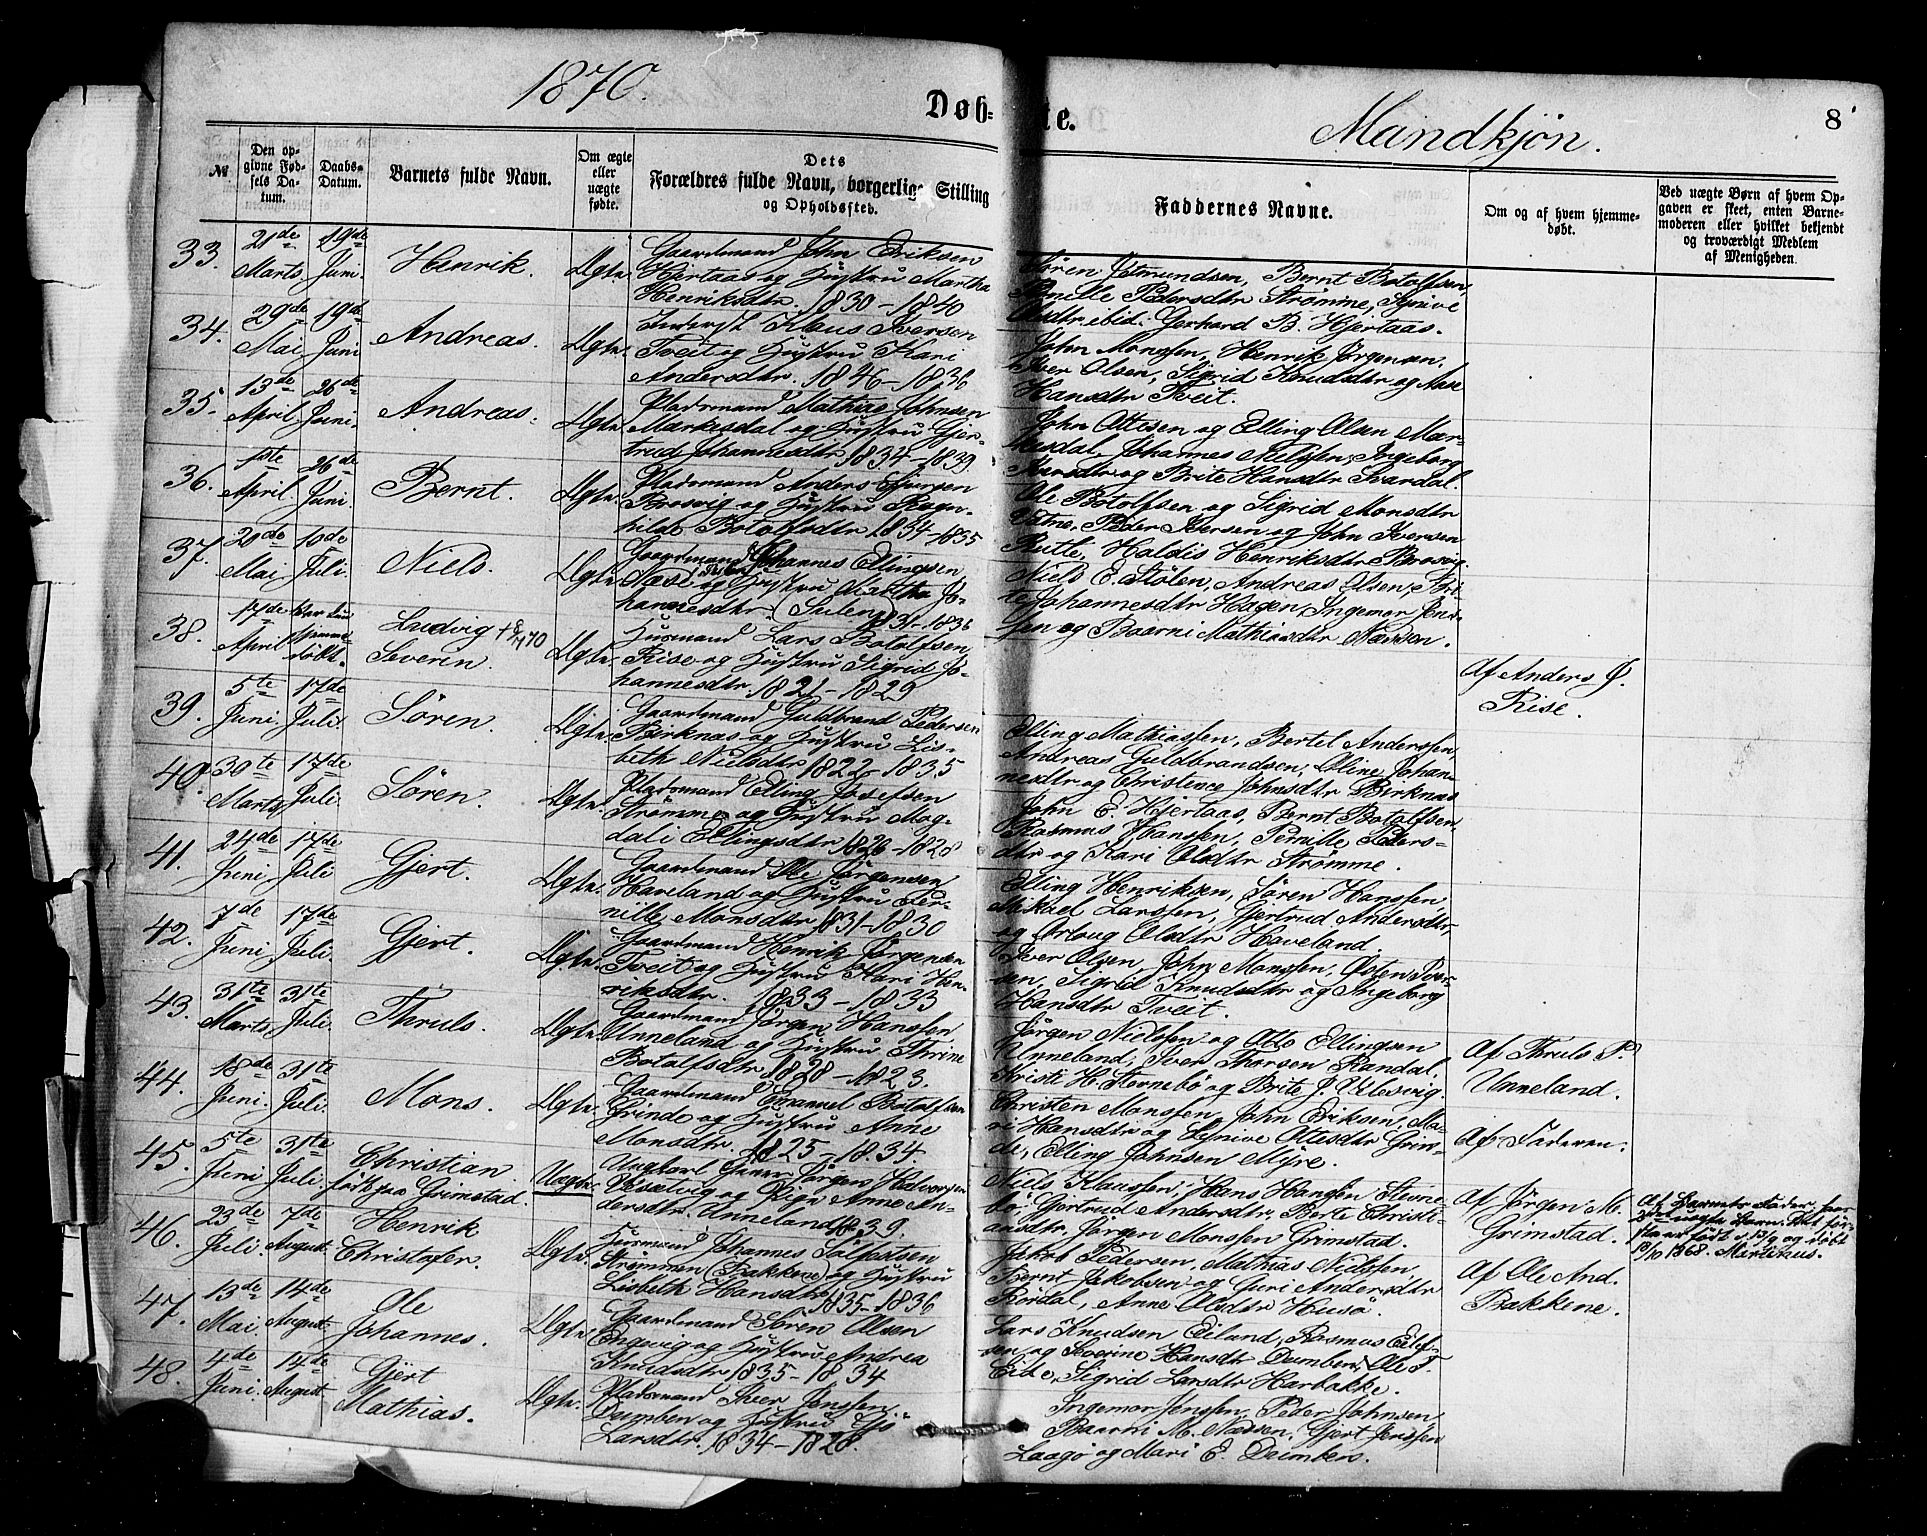 1870.
Døb-
te.
Mandkjøn.
8
№
Den op-
givne Fød-
sels Da-
tum.
Daabs-
Datum.
Barnets fulde Navn.
Om ægte
eller
uægte
fødte.
Dets
Forældres fulde Navn, borgerlige Stilling
og Opholdssted.
Faddernes Navne.
Om og af hvem hjemme-
døbt.
Ved uægte Børn af hvem Op-
gaven er skeet, enten Barne-
moderen eller hvilket bekjendt
og troværdigt Medlem
af Menigheden.
33.
21de
Marts
19de
Juni
Henrik.
Ægte.
Gaardmand John Eriksen
Hjertaas og Hustru Martha
Henriksdtr. 1830-1840
Søren Bernt Botolfsen,
Pernille Pedersdtr Strømme, Synive
Olsdtr ibid. Gerhard B. Hjertaas.
34.
29de
Mai
19de
Juni
Andreas.
Ægte.
Inderst Klaus Iversen
Tveit og Hustru Kari
Andersdtr. 1846-1836
John Monssen, Henrik Jørgensen,
Iver Olsen, Sigrid Knudsdtr og Aase
Hansdtr Tveit.
35.
13de
April
26de
Juni
Andreas.
Ægte.
Pladsmand Mathias Johnsen
Mærkesdal og Hustru Gjer-
trud Johannesdtr 1834-1839.
John Ottesen og Elling Olsen Mær-
kesdal, Johannes Nielssen, Ingeborg
og Brite Hansdtr Svardal.
36.
1ste
April
26de
Juni
Bernt.
Ægte.
Pladsmand Anders
Brosvig og Hustru Ragn-
hilde Botolfsdtr 1834-1835
Ole Botolfsen og Sigrid Monsdtr
Peder Iversen og John Iversen
Rutle, Haldis Henriksdtr Brosvig.
37.
20de
Mai
10de
Juli
Niels.
Ægte.
Gaardmand Johannes Ellingsen
Næs og Hustru Martha Jo-
hannesdtr (Sulen) 1831-1836
Niels E. Stølen, Andreas Olsen, Bri-
te Johannesdtr Hagen, Ingemor Jens-
sen og Baarni Mathiasdtr Næssen.
38.
17de
April
Kun
hjemme-
døbt.
Ludvig + 8/4 70
Severin.
Ægte.
Huusmand Lars Botolfsen
Rise og Hustru Sigrid Jo-
hannesdtr 1821-1829
Af Anders J.
Rise.
39.
5te
Juni
17de
Juli
Søren.
Ægte.
Gaardmand Guldbrand Pedersen
Birknæs og Hustru Lis-
beth Nielsdtr 1822-1835
Elling Mathiassen, Bertel Anderssen,
Andreas Guldbrandsen, Oline Johan-
nesdtr og Christence Johnsdtr Birknæs
40.
30te
Marts
17de
Juli
Søren.
Ægte.
Pladsmand Elling Josefsen
Strømme og Hustru Mag-
dali Ellingsdtr 1826-1828
John E. Hjertaas, Bernt Botolfsen
Rasmus Hanssen, Pernille Peders-
dtr og Kari Olsdtr Strømme.
41.
24de
Juni
17de
Juli
Gjert.
Ægte.
Gaardmand Ole Jørgensen
Haveland og Hustru Per-
nille Monsdtr 1831-1830
Elling Henriksen, Søren Hanssen,
Mikael Larssen, Gjertrud Andersdtr
og Arlaug Olsdtr Haveland.
42.
7de
Juni
17de
Juli
Gjert.
Ægte.
Gaardmand Henrik Jørgensen
Tveit og Hustru Kari Hen-
riksdtr. 1833-1833
Iver Olsen, John Monssen, Østen Iver-
sen, Sigrid Knudsdtr og Ingeborg
Hansdtr Tveit.
43.
31te
Marts
31te
Juli
Thruls.
Ægte.
Gaardmand Jørgen Hanssen
Unneland og Hustru Thrine
Botolfsdtr 1828-1823.
Jørgen Nielssen og Otto Ellingsen
Unneland, Iver Thorsen Randal,
Kristi H. Stornebø og Brite J. Ulesvig.
Af Thruls P.
Unneland.
44.
18de
Juni
31te
Juli
Mons.
Ægte.
Gaardmand Emanuel Botolfsen
Grinde og Hustru Anne
Monsdtr 1825-1834
Christen Monssen, John Eriksen, Ma-
ri Hansdtr og Synive Ottesdtr Grin-
de, Elling Johnsen Myre.
Af Faderen.
45.
5te
Juni
31te
Juli
Christian
født paa Grimstad.
Uægte.
Ungkarl Jørgen Halvorsen
og Pige Anne An-
dersdtr. Unneland 1839.
Niels Klaussen, Hans Hanssen Steine-
bø, Gertrud Andersdtr, Berte Christi-
ansdtr, Jørgen Monssen Grimstad.
Af Jørgen M.
Grimstad.
Af Barnets Fader, har
2det uægte Barn. Det før-
ste er født d. 13/9 og døbt
18/10 1868. Martinus.
46.
23de
Juli
7de
August
Henrik
Christofer.
Ægte.
Huusmand Johannes Salfestsen
Strømmen (Bakkene) og Hustru
Lisbeth Hansdtr 1835-1836
Jakob Pedersen, Mathias Nielssen
Bernt Jakobsen og Guri Andersdtr
Rørdal, Anne Olsdtr Husø.
Af Ole And.
Bakkene.
47.
13de
Mai
14de
August
Ole
Johannes.
Ægte.
Gaardmand Søren Olsen
Engevig og Hustru Andrea
Knudsdtr 1835-1834
Lars Knudsen Eiland, Rasmus Eilif-
sen og Severine Hansdtr Dumben, Ole T.
Eide, Sigrid Larsdtr Harbakke.
48.
4de
Juni
14de
August
Gjert
Mathias.
Ægte.
Pladsmand Iver Jenssen
Dumben og Hustru
Larsdtr. 1834-1828.
Ingemor Jenssen, Peder Johnsen,
Baarni M. Næssen, Gjert Jenssen
Laagø og Mari E. Dumben.